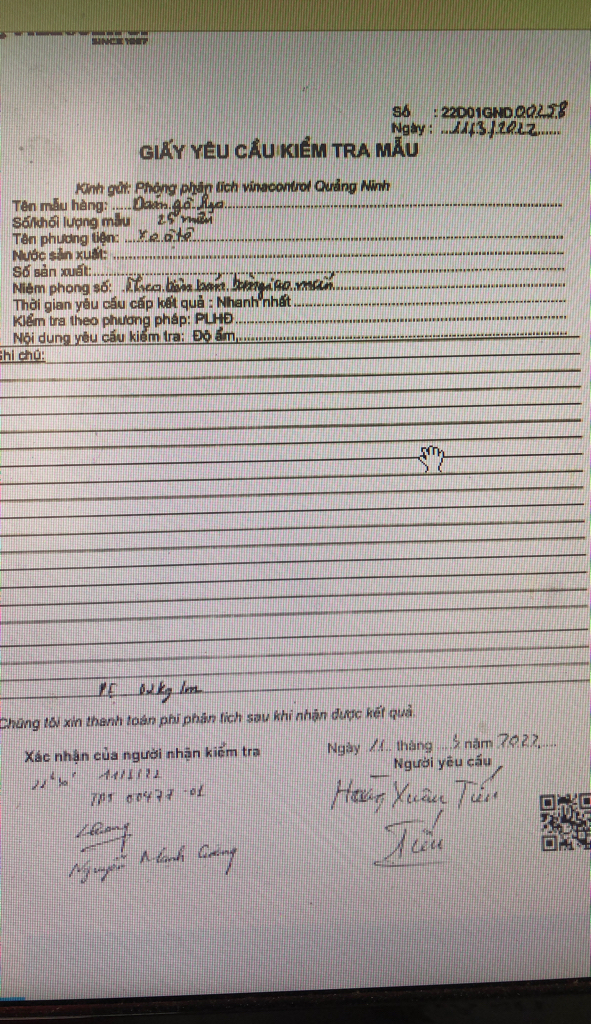 SINCE 1957
Số : 22D01GND.00258
Ngày : 11/3/2022
GIẤY YÊU CẦU KIỂM TRA MẪU
Kính gửi: Phòng phân tích vinacontrol Quảng Ninh
Tên mẫu hàng: Dăm gỗ keo
Số/khối lượng mẫu 25 mẫu
Tên phương tiện: Xe ôtô
Nước sản xuất:
Số sản xuất:
Niêm phong số: Theo biên bản bàn giao mẫu
Thời gian yêu cầu cấp kết quả : Nhanh nhất
Kiểm tra theo phương pháp: PLHĐ
Nội dung yêu cầu kiểm tra: Độ ẩm,
Ghi chú:
PE 02kg/m
Chúng tôi xin thanh toán phí phân tích sau khi nhận được kết quả.
Xác nhận của người nhận kiểm tra
Ngày 11 tháng 3 năm 2022
Người yêu cầu
11/3/22
00477-01
Hoàng Xuân Tiến
Tiến
Nguyễn Mạnh Cường